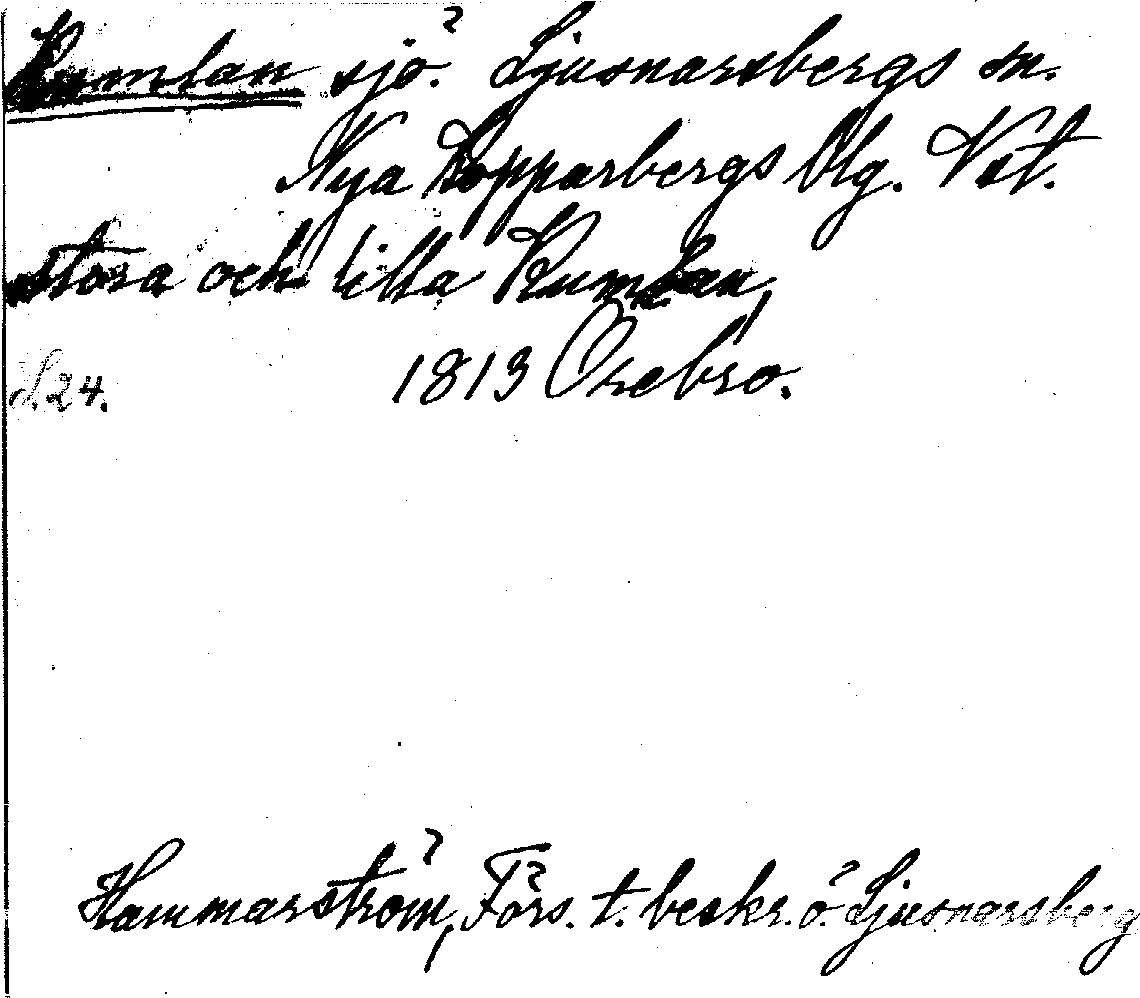 Rumlan sjö. Ljusnarsbergs sn.
Nya Kopparbergs blg. Vst.
stora och lilla Rumlan,
1813 Örebro.
S. 24.
Hammarström, Förs. t. beskr. ö. Ljusnarsberg